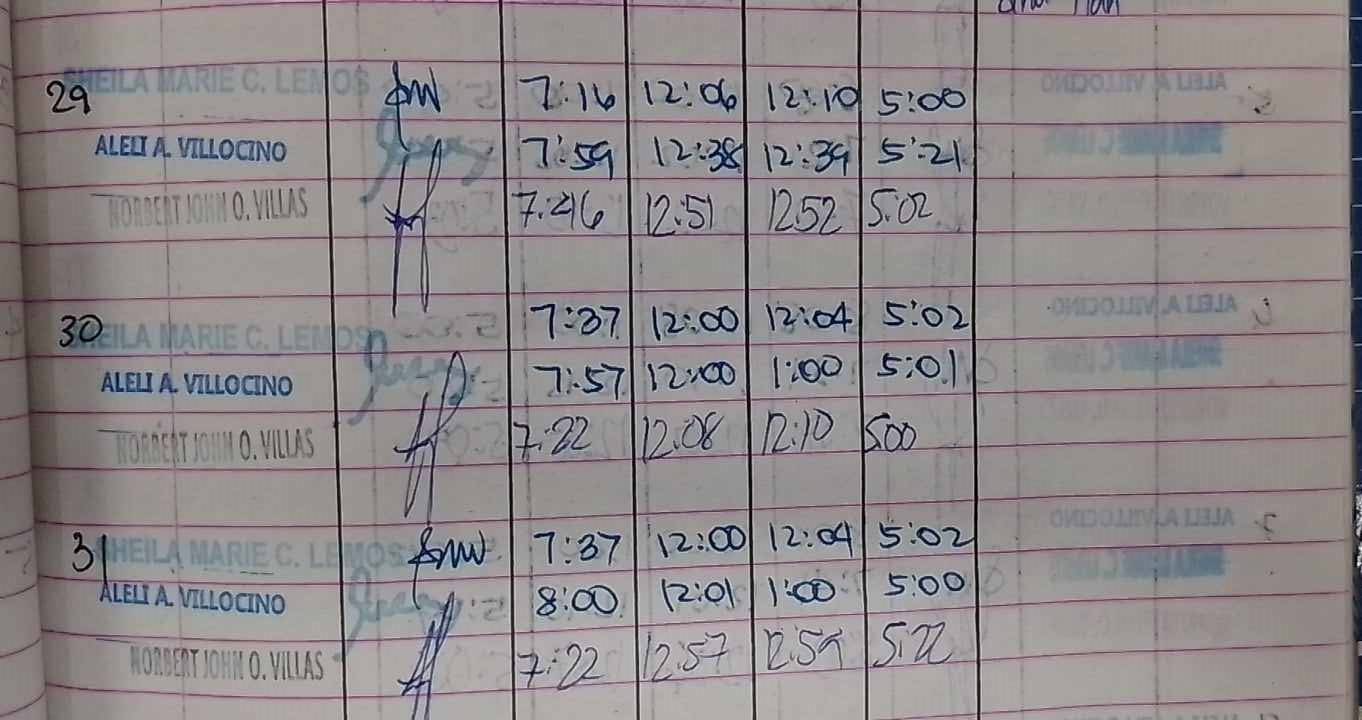 29 SHEILA MARIE C. LEMOS 7:16 12:06 12:10 5:00
ALELI A. VILLOCINO 7:59 12:38 12:39 5:21
NORBERT JOHN O. VILLAS 7:46 12:51 12:52 5:02
30 SHEILA MARIE C. LEMOS 7:37 12:00 12:04 5:02
ALELI A. VILLOCINO 7:57 12:00 1:00 5:01
NORBERT JOHN O. VILLAS 7:22 12:08 12:10 500
31 SHEILA MARIE C. LEMOS 7:37 12:00 12:04 5:02
ALELI A. VILLOCINO 8:00 12:01 1:00 5:00
NORBERT JOHN O. VILLAS 7:22 12:57 12:59 5:22